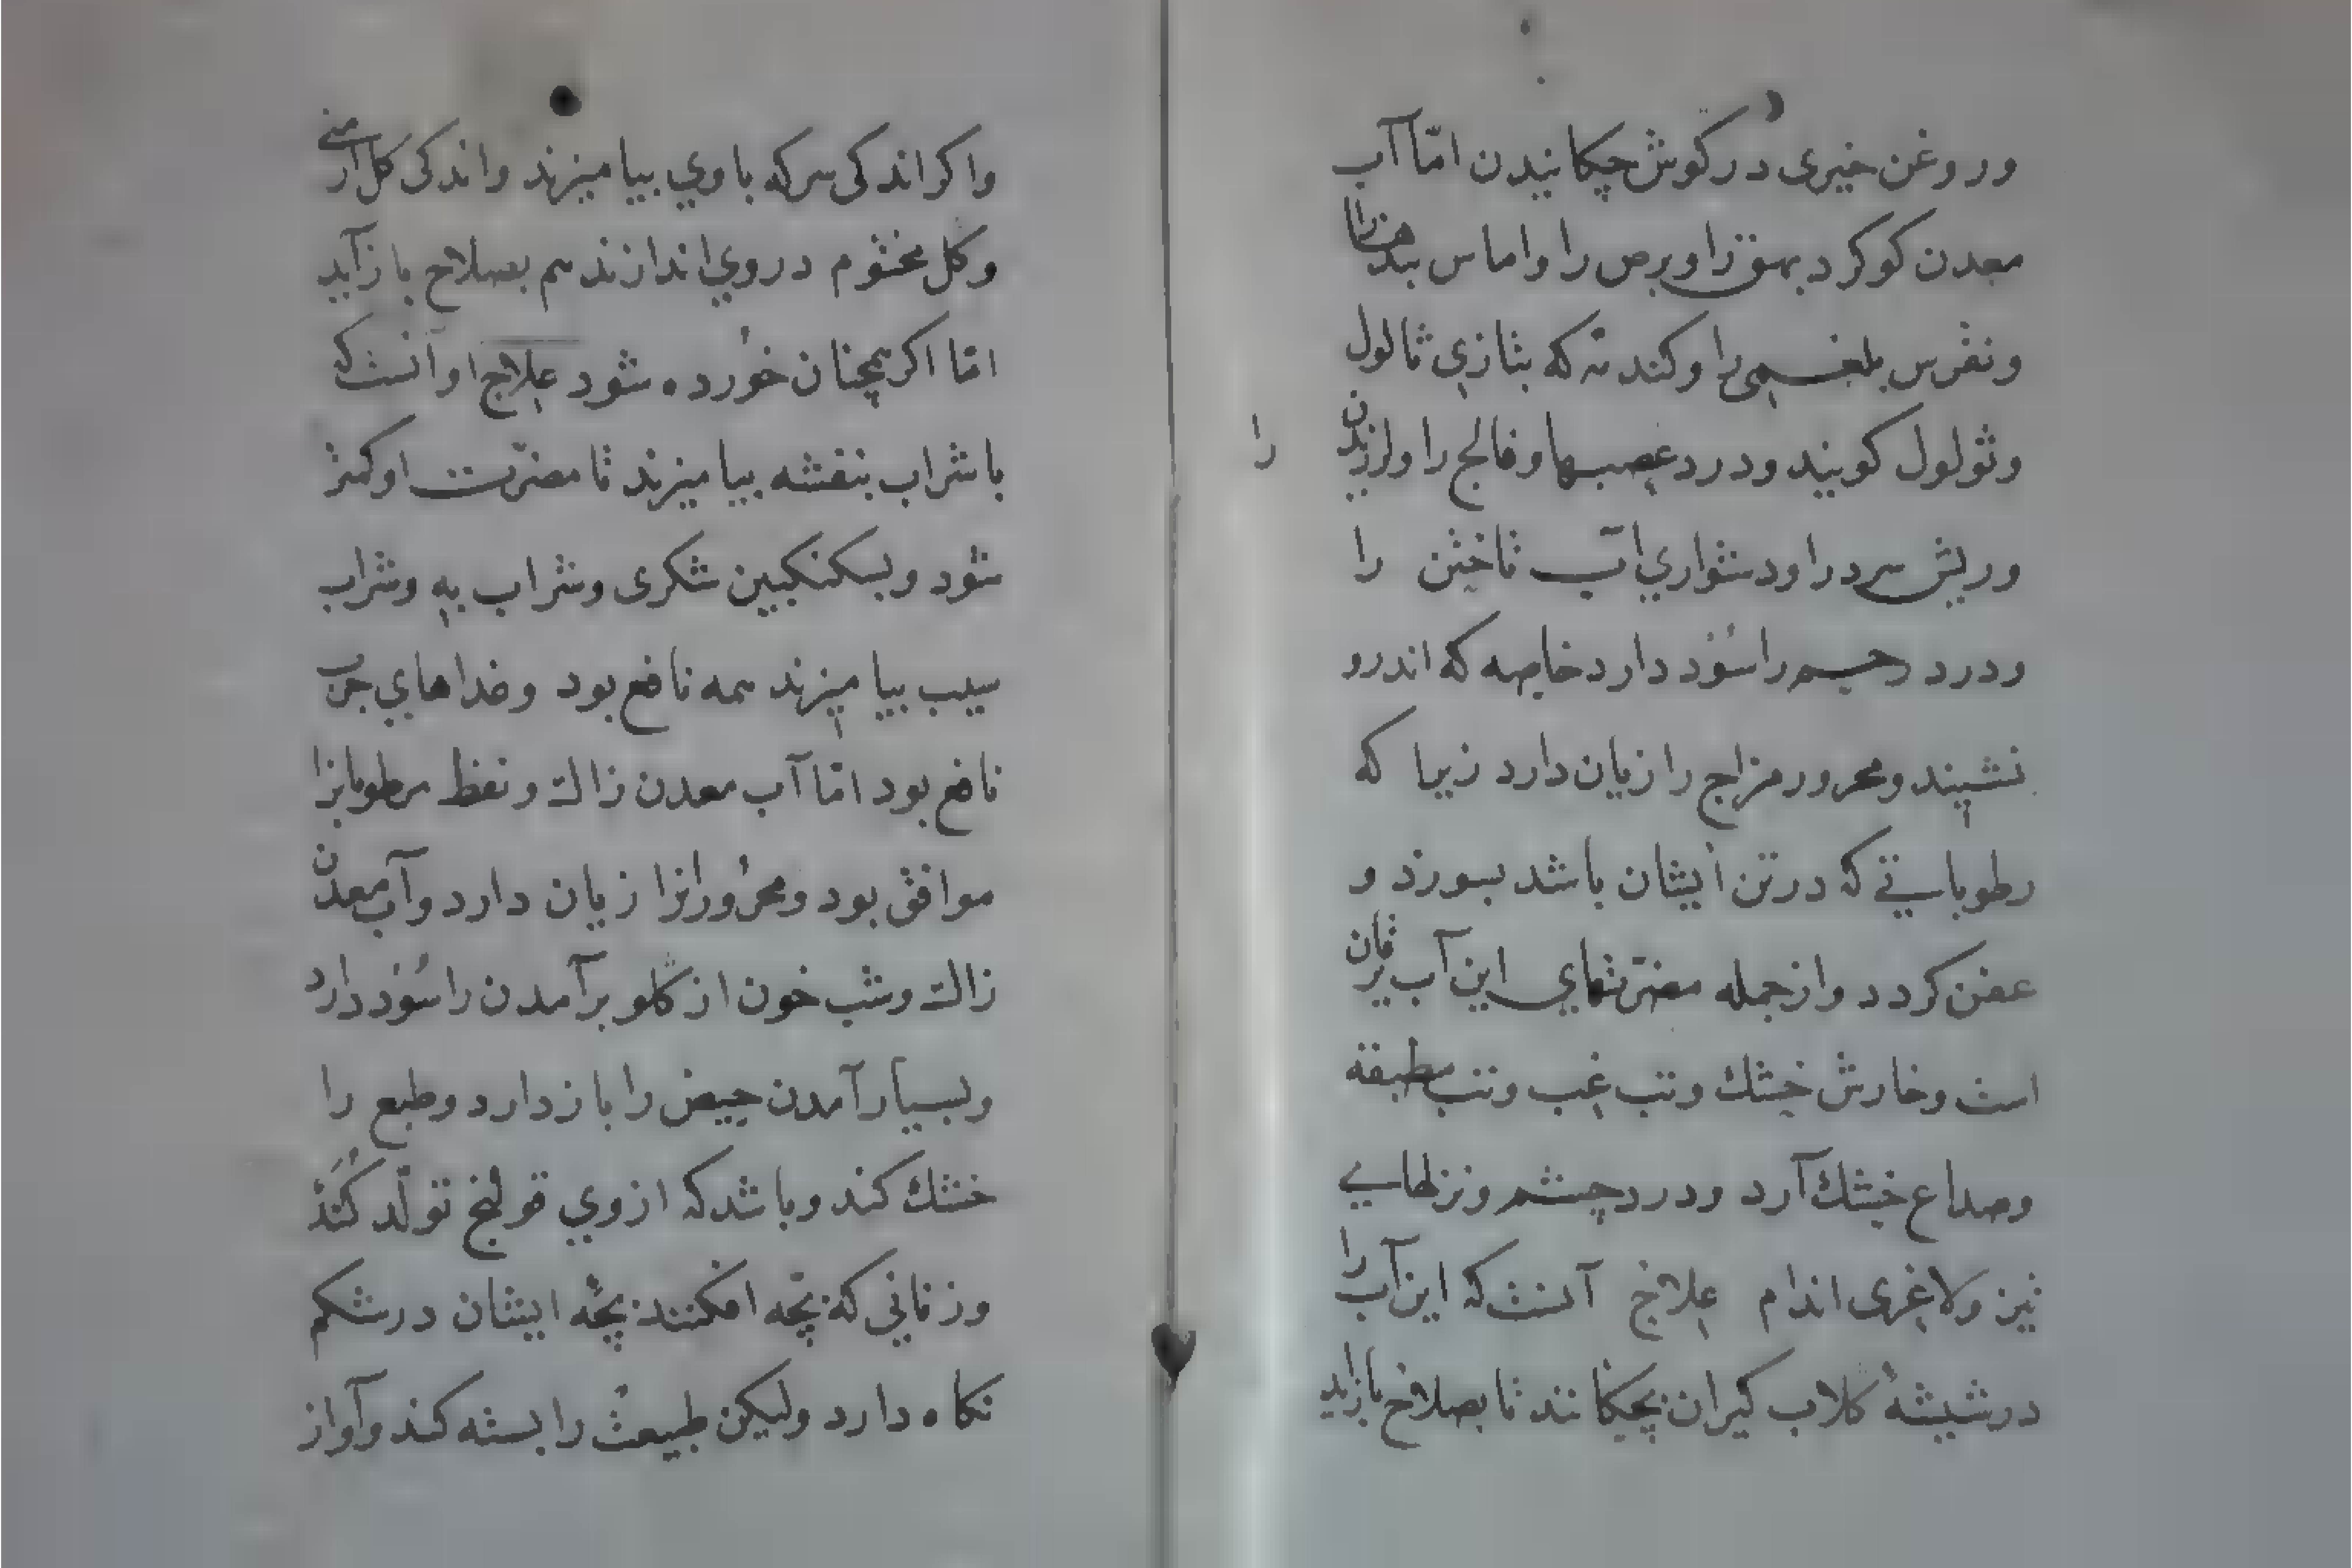 وروغن خیری در کوش چکانیدن امّا آب
معدن کوکرد بهق را وبرص را واماس بندهارا
ونقرس بلغمی را وکندنه که بتازی ثالول
وثولول کویند ودرد عصبها وفالج را ولرزیدن
را
وریش سرد را ودشواری آب تاختن را
ودرد رحم را سُوذ دارد خاصه که اندرو
نشیند ومحرور مزاج را زیان دارد زیرا که
رطوباتی که در تن ایشان باشد بسوزد و
عفن کردد وازجمله مضرّتهای این آب یرقان
است وخارش خشك وتب غب وتب مطبقه
وصداع خشك آرد ودرد چشم ونزلهایی
نیز ولاغری اندام علاج آنست که این آب را
در شیشهٔ کلاب کیران بچکانند تا بصلاح بازاید
واکر اندکی سرکه باوی بیامیزند واندکی کل ارمنی
وکل مختوم دروی اندازند هم بصلاح بازآید
امّا اکر همچنان خُورده شود علاج او آنست که
با شراب بنفشه بیامیزند تا مضرّت او کمتر
شود وبسکنکبین شکری وشراب به وشراب
سیب بیامیزند همه نافع بود وغذاهای چرب
نافع بود امّا آب معدن زاك ونفط مرطوبانرا
موافق بود ومحرُورانرا زیان دارد وآب معدن
زاك وشب خون از کلو برآمدن را سُوذ دارد
وبسیار آمدن حیض را باز دارد وطبع را
خشك کند وباشد که ازوی قولنج تولّد کُنَدْ
وزنانی که بچّه افکنند بچّهٔ ایشان در شکم
نکاه دارد ولیکن طبیعت را بسته کند وآواز